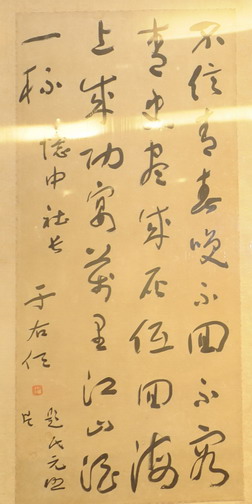 不信青春喚不回不容
青史盡成灰低回海
上成功宴萬里江山酒
一杯
憶申社長
于右任